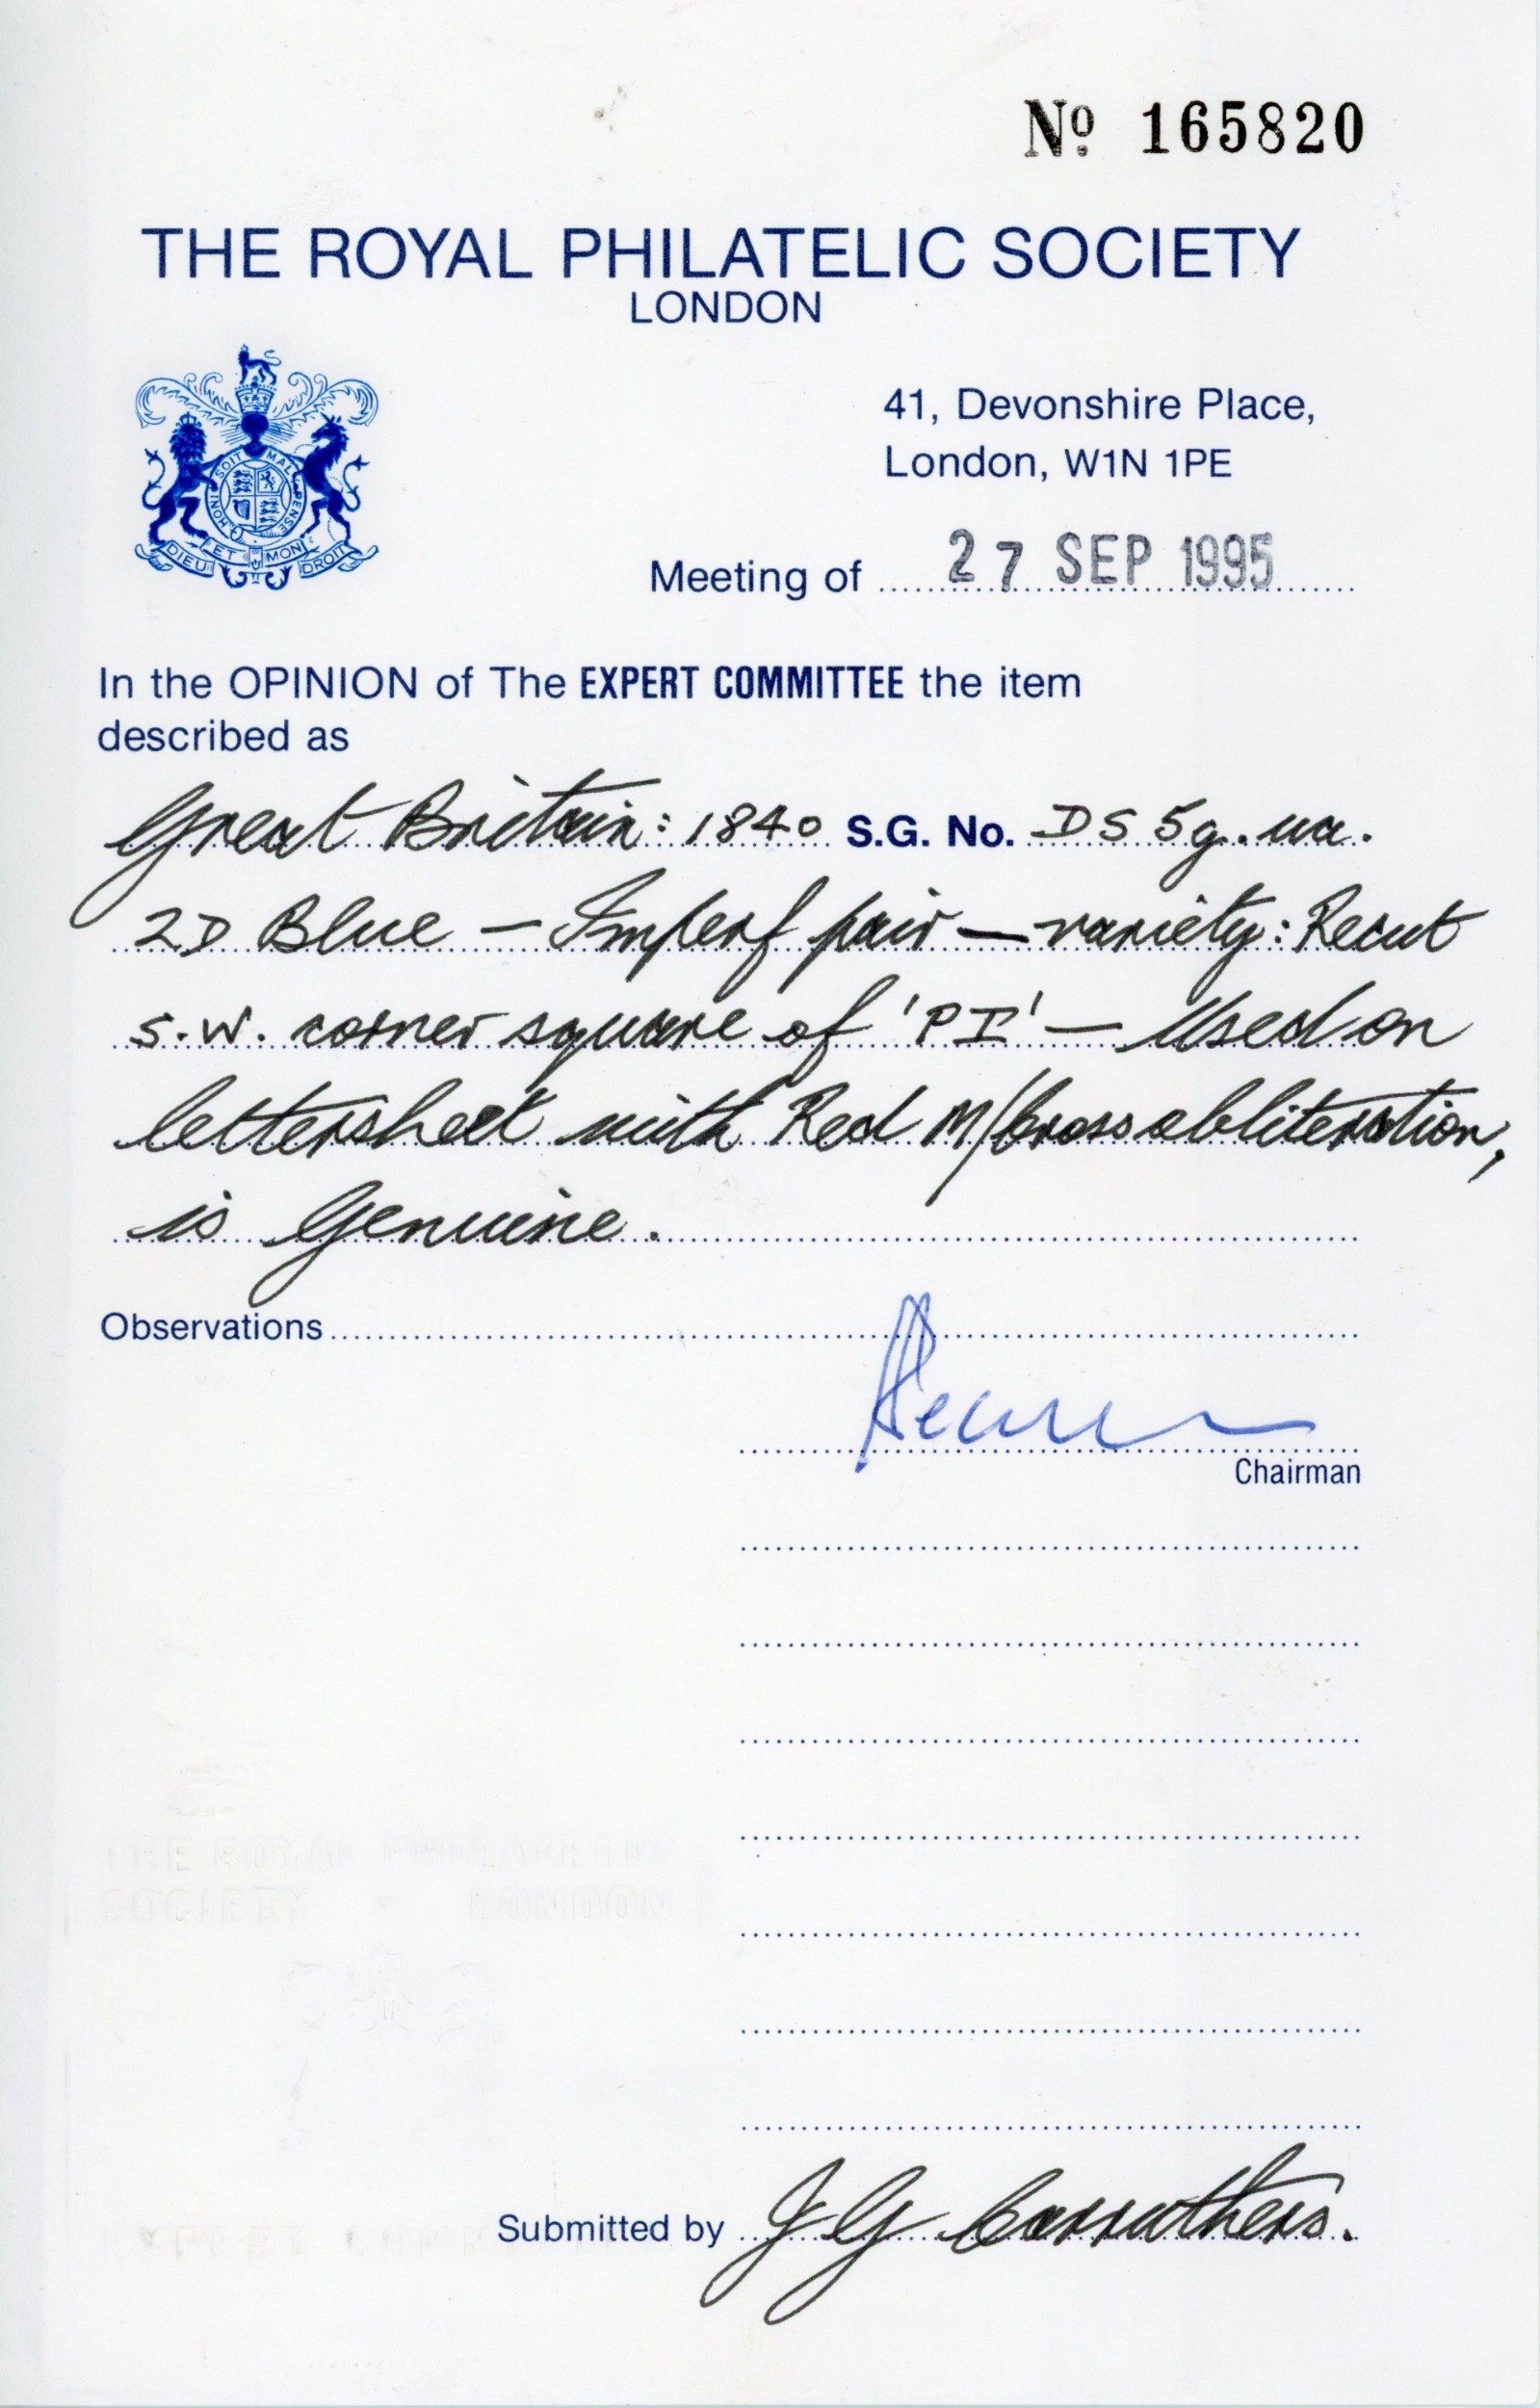 Nº 165820
THE ROYAL PHILATELIC SOCIETY
LONDON
SOIT MAL PENSE HONI
DIEU ET MON DROIT
41, Devonshire Place,
London, W1N 1PE
Meeting of 27 SEP 1995
In the OPINION of The EXPERT COMMITTEE the item
described as
Great Britain: 1840 S.G. No. DS5g.ua.
2D Blue — Imperf pair — variety: Recut
S.W. corner square of 'PI' — Used on
lettersheet with Red M/Cross obliteration,
is Genuine.
Observations
Chairman
THE ROYAL PHILATELIC
SOCIETY LONDON
Submitted by J G Carruthers.